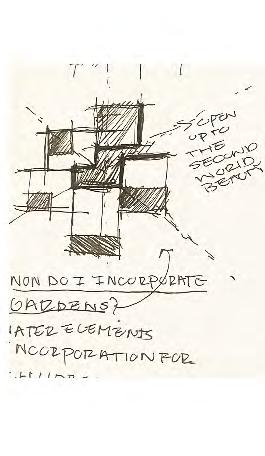 OPEN
UP TO
THE
SECOND
WORLD
BEAUTY
DO I INCORPORATE
GARDENS?
WATER ELEMENTS
INCORPORATION FOR